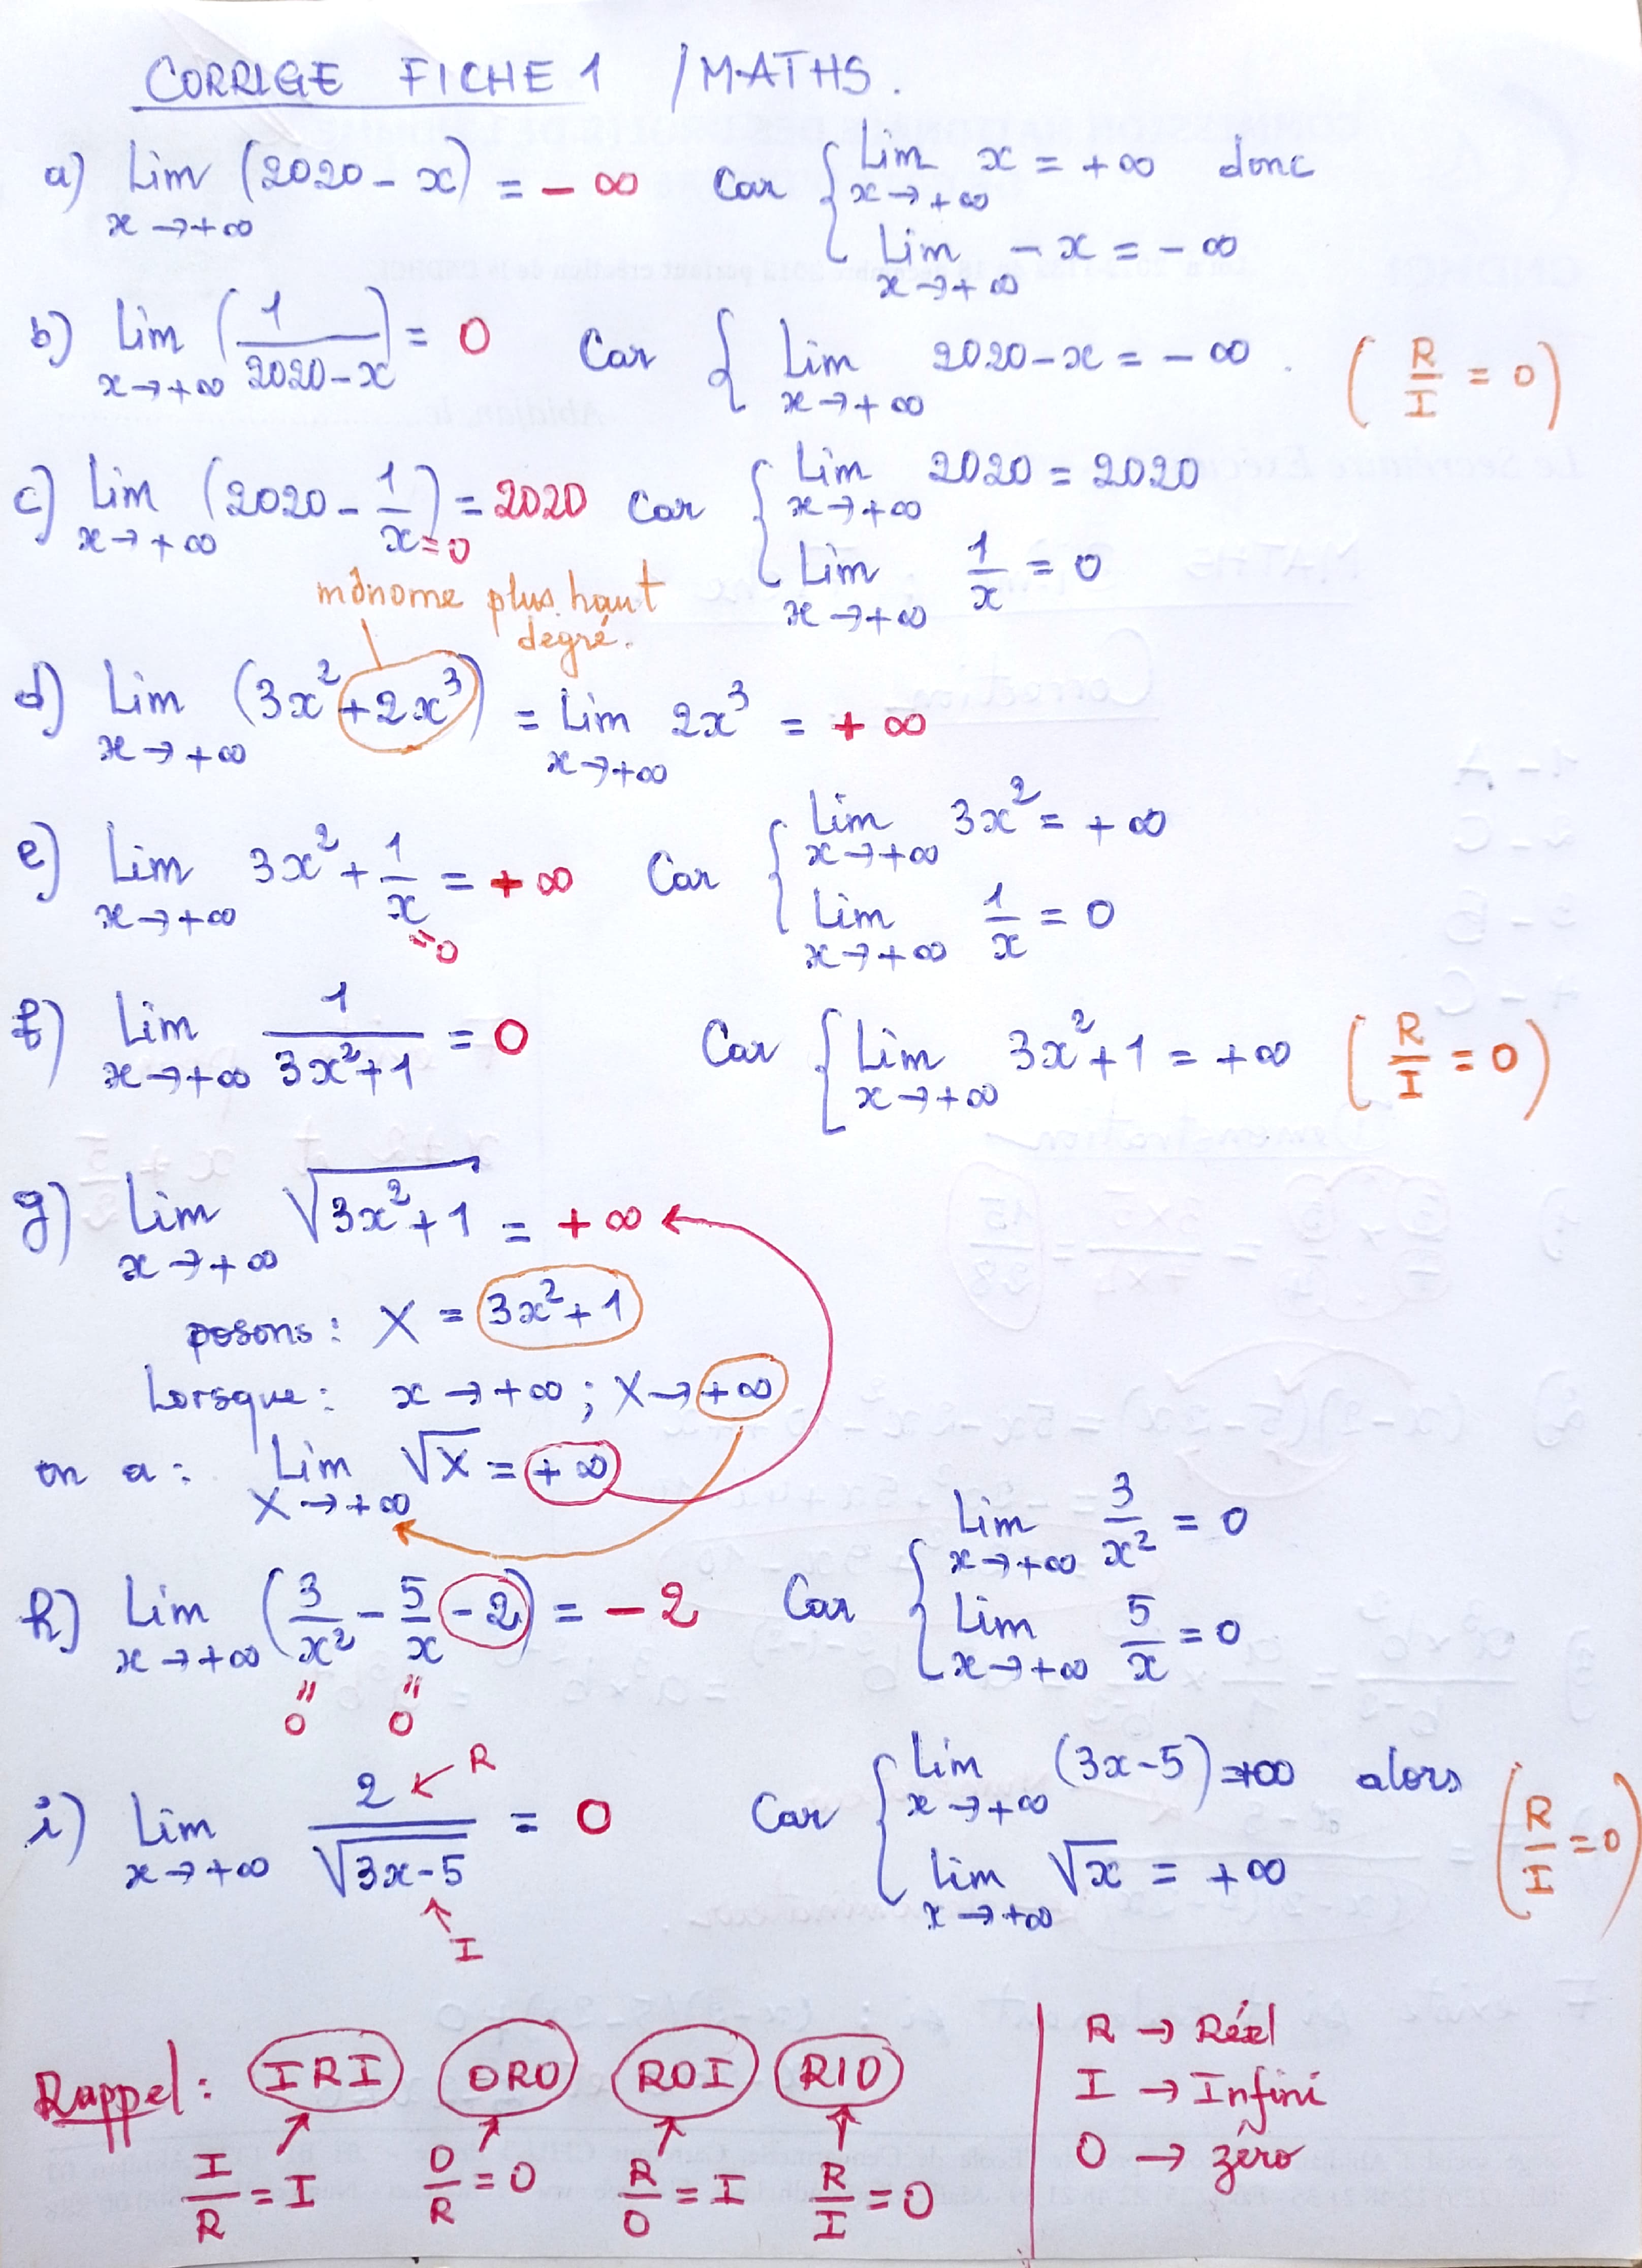 CORRIGE FICHE 1 / MATHS.
a) Lim (2020 - x) = - ∞ Car { Lim x = + ∞ donc
x → +∞ x → +∞
Lim - x = - ∞
x → +∞
b) Lim (1/(2020 - x)) = 0 Car { Lim 2020 - x = - ∞ . (R/I = 0)
x → +∞ x → +∞
c) Lim (2020 - 1/x) = 2020 Car { Lim 2020 = 2020
x → +∞ = 0 x → +∞
Lim 1/x = 0
x → +∞
mônome plus haut
degré.
d) Lim (3x² + 2x³) = Lim 2x³ = + ∞
x → +∞ x → +∞
e) Lim 3x² + 1/x = + ∞ Car { Lim 3x² = + ∞
x → +∞ = 0 x → +∞
Lim 1/x = 0
x → +∞
f) Lim 1/(3x² + 1) = 0 Car { Lim 3x² + 1 = +∞ (R/I = 0)
x → +∞ x → +∞
g) Lim √(3x² + 1) = + ∞
x → +∞
posons : X = 3x² + 1
Lorsque : x → +∞ ; X → +∞
on a : Lim √X = + ∞
X → +∞
h) Lim (3/x² - 5/x - 2) = - 2 Car { Lim 3/x² = 0
x → +∞ x → +∞
= 0 = 0
Lim 5/x = 0
x → +∞
i) Lim 2/√(3x - 5) = 0 Car { Lim (3x - 5) = +∞ alors (R/I = 0)
x → +∞ x → +∞
R
I
Lim √x = +∞
x → +∞
Rappel : IRI ORO ROI RIO
I/R = I O/R = O R/O = I R/I = O
R → Réel
I → Infini
O → zéro